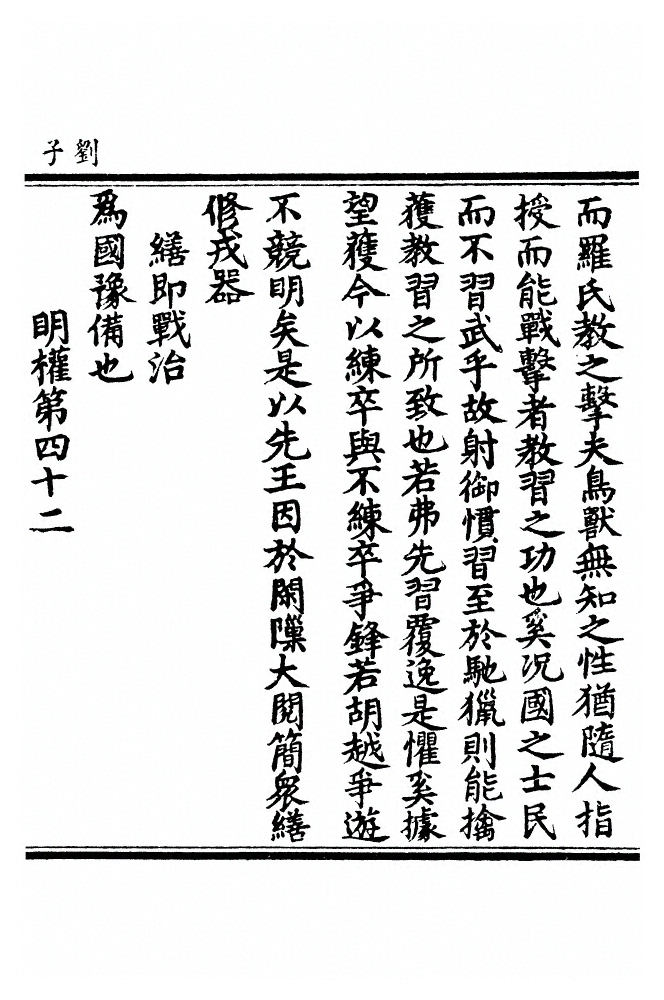 劉子
而羅氏教之擊夫鳥獸無知之性猶隨人指
授而能戰擊者教習之功也奚况國之士民
而不習武乎故射御慣習至於馳獵則能擒
獲教習之所致也若弗先習覆逸是懼奚據
望獲今以練卒與不練卒爭鋒若胡越爭遊
不競明矣是以先王因於閑隟大閱簡衆繕
修戎器
繕即戰治
爲國豫備也
明權第四十二